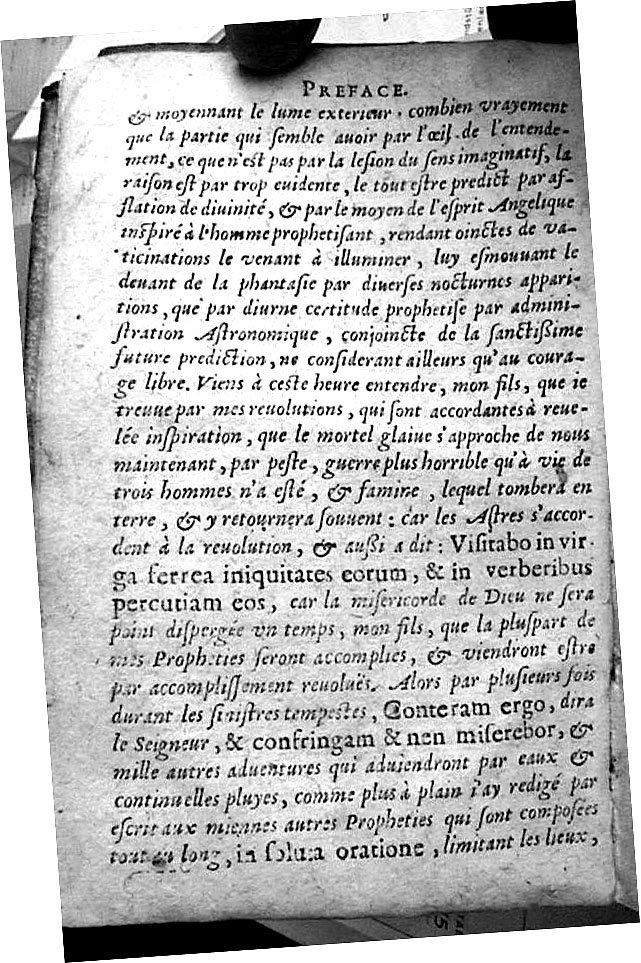 PREFACE.
& moyennant le lume exterieur, combien vrayement
que la partie qui semble auoir par l'œil de l'entende-
ment, ce que n'est pas par la lesion du sens imaginatif, la
raison est par trop euidente, le tout estre predict par af-
flation de diuinité, & par le moyen de l'esprit Angelique
inspiré à l'homme prophetisant, rendant oinctes de va-
ticinations le venant à illuminer, luy esmouuant le
deuant de la phantasie par diuerses nocturnes appari-
tions, que par diurne certitude prophetise par admini-
stration Astronomique, conjoincte de la sanctissime
future prediction, ne considerant ailleurs qu'au coura-
ge libre. Viens à ceste heure entendre, mon fils, que ie
treuue par mes reuolutions, qui sont accordantes à reue-
lée inspiration, que le mortel glaiue s'approche de nous
maintenant, par peste, guerre plus horrible qu'à vie de
trois hommes n'a esté, & famine, lequel tombera en
terre, & y retournera souuent: car les Astres s'accor-
dent à la reuolution, & aussi a dit: Visitabo in vir-
ga ferrea iniquitates eorum, & in verberibus
percutiam eos, car la misericorde de Dieu ne sera
point dispergée vn temps, mon fils, que la pluspart de
mes Propheties seront accomplies, & viendront estre
par accomplissement reuolués. Alors par plusieurs fois
durant les sinistres tempestes, Conteram ergo, dira
le Seigneur, & confringam & non miserebor, &
mille autres aduentures qui aduiendront par eaux &
continuelles pluyes, comme plus à plain i'ay redigé par
escrit aux miennes autres Propheties qui sont composées
tout au long, in soluta oratione, limitant les lieux,